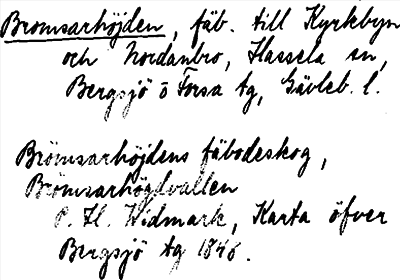 Bromsarhöjden, fäb. till Kyrkbyn
och Nordanbro, Hassela sn,
Bergsjö o Forsa tg, Gävleb. l.
Brömsarhöjdens fäbodeskog,
Brömsarhögdvallen
P. H. Widmark, Karta öfver
Bergsjö tg 1846.